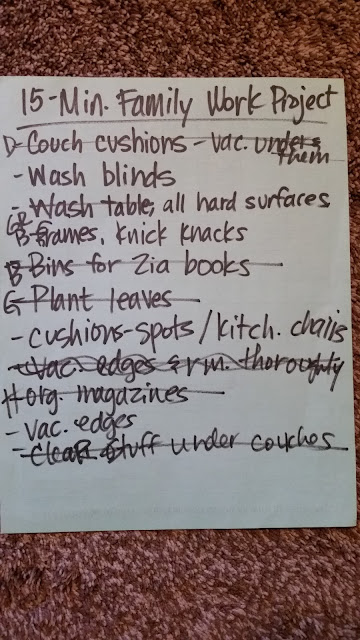 15-Min. Family Work Project
D-Couch cushions - vac. under
them
- Wash blinds
- Wash table, all hard surfaces
B-frames, knick knacks
B-Bins for Zia books
G-Plant leaves
- cushions-spots/kitch. chairs
- Vac. edges & rm. thoroughly
H org. magazines
- Vac. edges
- Clear stuff under couches